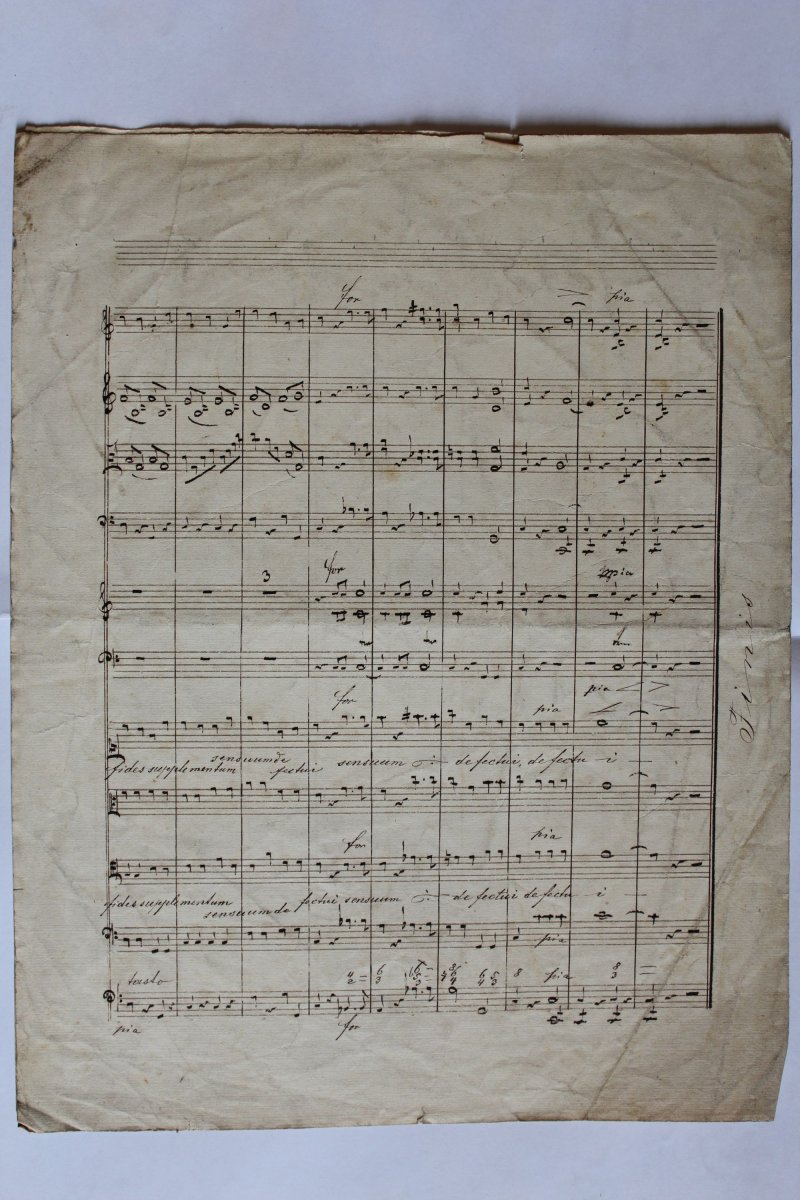 for
pia
3
for
pia
pia
for
pia
fides supplementum sensuum de fectui sensuum de fectui, de fectu - i -
for
pia
fides supplementum sensuum de fectui sensuum de fectui de fectu - i -
pia
tasto
pia
pia
for
Finis